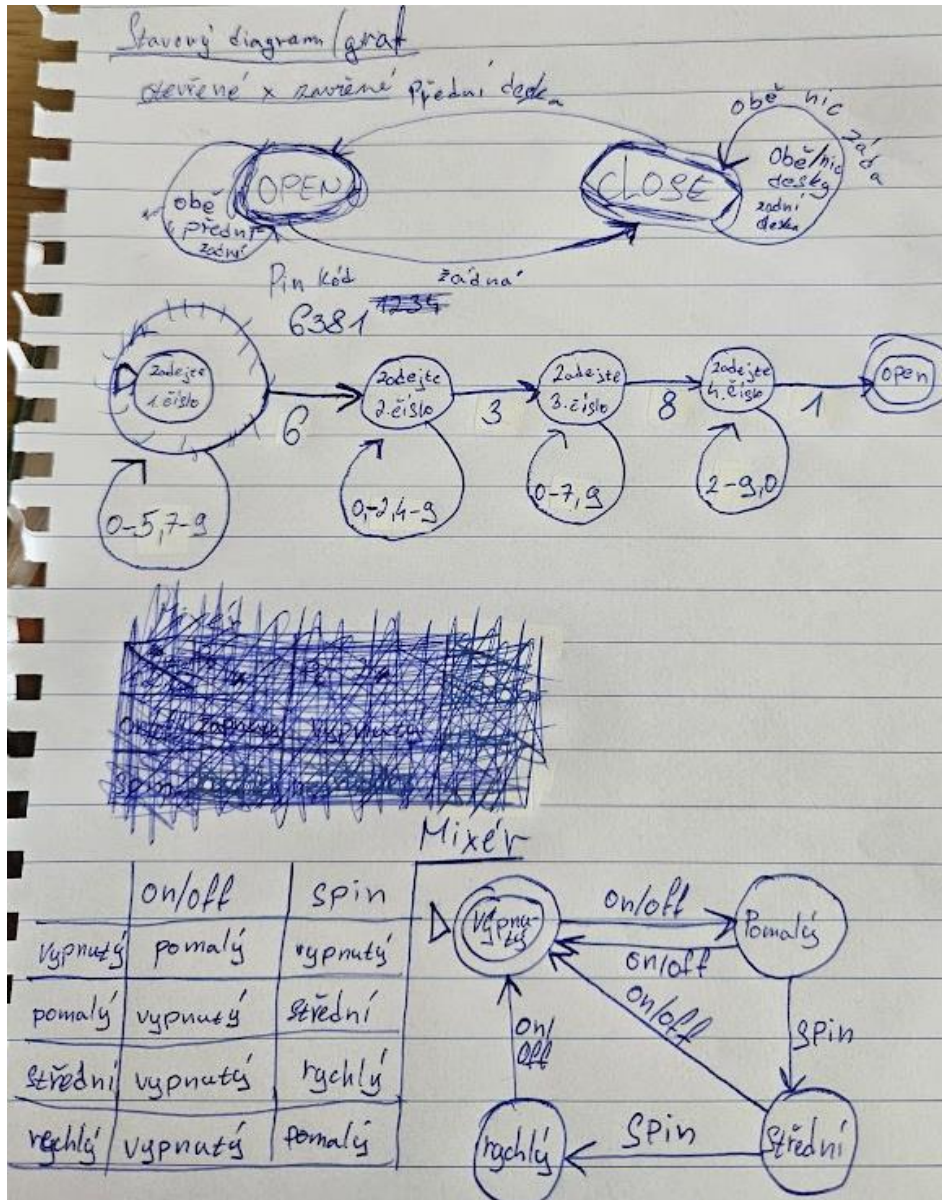 Stavový diagram/graf
otevřené x zavřené přední deska
obě nic žádná
OPEN
CLOSE
obě přední zadní
Obě/nic desky zadní deska
Pin kód žádná
6381
zadejte 1. číslo
zadejte 2. číslo
zadejte 3. číslo
zadejte 4. číslo
open
6
3
8
1
0-5,7-9
0,-2,4-9
0-7,9
2-9,0
Mixér
on/off spin
vypnutý pomalý vypnutý
pomalý vypnutý střední
střední vypnutý rychlý
rychlý vypnutý pomalý
vypnu-
tý
on/off
Pomalý
on/off
on/off
on/
off
spin
rychlý
spin
střední